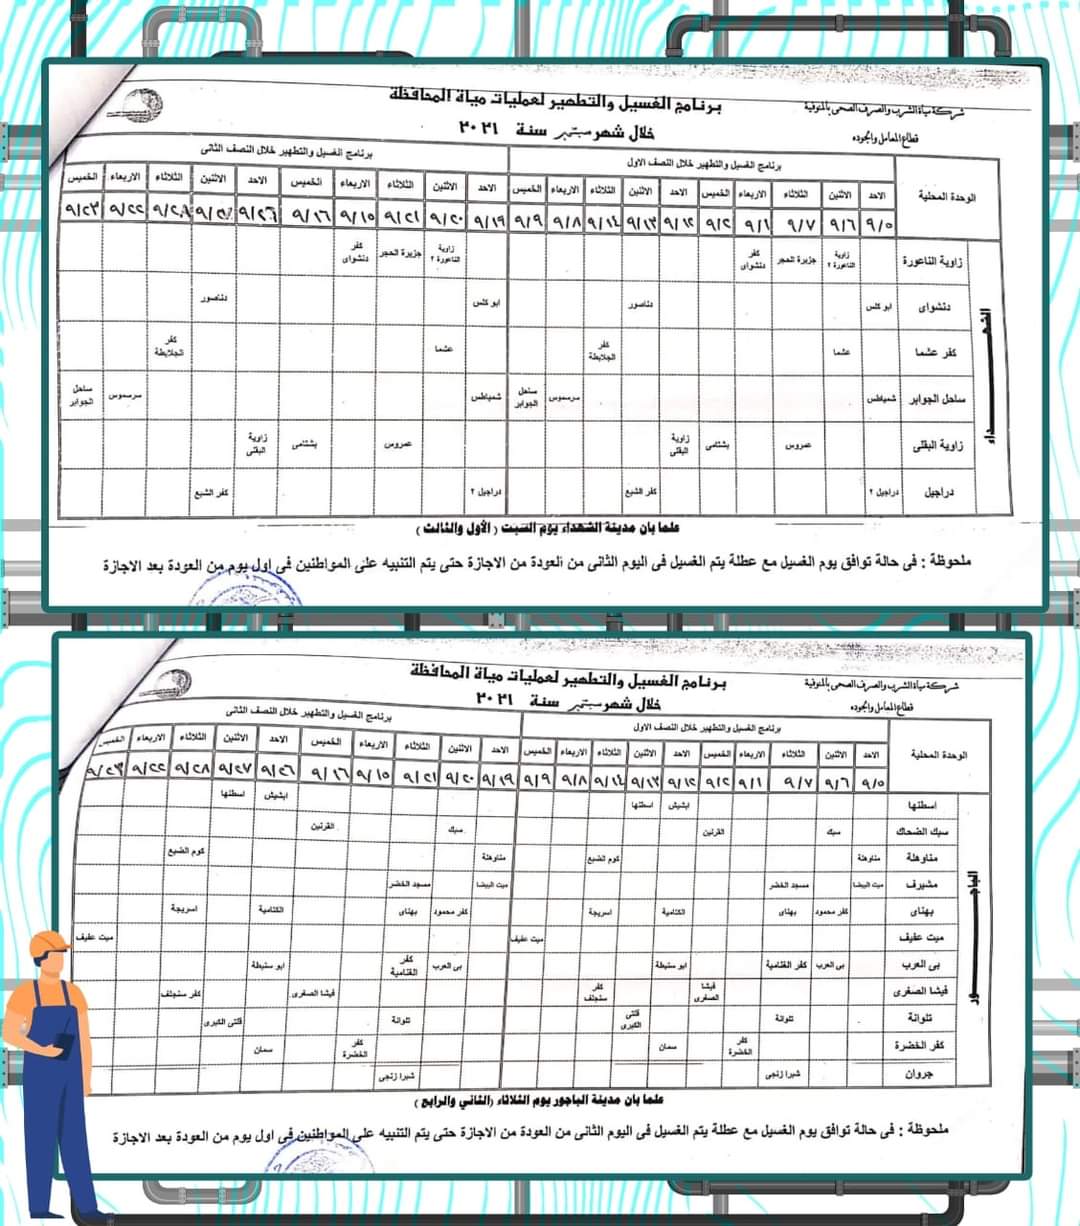 شركة مياة الشرب والصرف الصحى بالمنوفية
قطاع المعامل والجوده
برنامج الغسيل والتطهير لعمليات مياة المحافظة
خلال شهر سبتمبر سنة ٢٠٢١
الوحدة المحلية برنامج الغسيل والتطهير خلال النصف الاول برنامج الغسيل والتطهير خلال النصف الثانى
الاحد الاثنين الثلاثاء الاربعاء الخميس الاحد الاثنين الثلاثاء الاربعاء الخميس الاحد الاثنين الثلاثاء الاربعاء الخميس الاحد الاثنين الثلاثاء الاربعاء الخميس
٩/٥ ٩/٦ ٩/٧ ٩/١ ٩/٢ ٩/١٢ ٩/١٣ ٩/١٤ ٩/٨ ٩/٩ ٩/١٩ ٩/٢٠ ٩/٢١ ٩/١٥ ٩/١٦ ٩/٢٦ ٩/٢٧ ٩/٢٨ ٩/٢٢ ٩/٢٣
الشهداء
زاوية الناعورة زاوية الناعورة ٢ جزيرة الحجر كفر دنشواى زاوية الناعورة ٢ جزيرة الحجر كفر دنشواى
دنشواى ابو كلس دناصور ابو كلس دناصور
كفر عشما عشما كفر الجلابطة عشما كفر الجلابطة
ساحل الجوابر شمياطس سرسموس ساحل الجوابر شمياطس سرسموس ساحل الجوابر
زاوية البقلى عمروس بشتامى زاوية البقلى عمروس بشتامى زاوية البقلى
دراجيل دراجيل ٢ كفر الشبع دراجيل ٢ كفر الشبع
علما بان مدينة الشهداء يوم السبت ( الأول والثالث )
ملحوظة : فى حالة توافق يوم الغسيل مع عطلة يتم الغسيل فى اليوم الثانى من العودة من الاجازة حتى يتم التنبيه على المواطنين فى اول يوم من العودة بعد الاجازة
شركة مياة الشرب والصرف الصحى بالمنوفية
قطاع المعامل والجوده
برنامج الغسيل والتطهير لعمليات مياة المحافظة
خلال شهر سبتمبر سنة ٢٠٢١
الوحدة المحلية برنامج الغسيل والتطهير خلال النصف الاول برنامج الغسيل والتطهير خلال النصف الثانى
الاحد الاثنين الثلاثاء الاربعاء الخميس الاحد الاثنين الثلاثاء الاربعاء الخميس الاحد الاثنين الثلاثاء الاربعاء الخميس الاحد الاثنين الثلاثاء الاربعاء الخميس
٩/٥ ٩/٦ ٩/٧ ٩/١ ٩/٢ ٩/١٢ ٩/١٣ ٩/١٤ ٩/٨ ٩/٩ ٩/١٩ ٩/٢٠ ٩/٢١ ٩/١٥ ٩/١٦ ٩/٢٦ ٩/٢٧ ٩/٢٨ ٩/٢٢ ٩/٢٣
الباجور
اسطنها ابشيش اسطنها ابشيش اسطنها
سبك الضحاك سبك القرنين سبك القرنين
مناوهلة مناوهلة كوم الضبع مناوهلة كوم الضبع
مشيرف ميت البيضا مسجد الخضر ميت البيضا مسجد الخضر
بهناى كفر محمود بهناى الكتامية اسريجة كفر محمود بهناى الكتامية اسريجة
ميت عفيف ميت عفيف ميت عفيف
بى العرب بى العرب كفر القنامية ابو سنيطة بى العرب كفر القنامية ابو سنيطة
فيشا الصغرى فيشا الصغرى كفر سنجلف فيشا الصغرى كفر سنجلف
تلوانة تلوانة قلتى الكبرى تلوانة قلتى الكبرى
كفر الخضرة كفر الخضرة سمان كفر الخضرة سمان
جروان شبرا زنجى شبرا زنجى
علما بان مدينة الباجور يوم الثلاثاء (الثاني والرابع )
ملحوظة : فى حالة توافق يوم الغسيل مع عطلة يتم الغسيل فى اليوم الثانى من العودة من الاجازة حتى يتم التنبيه على المواطنين فى اول يوم من العودة بعد الاجازة